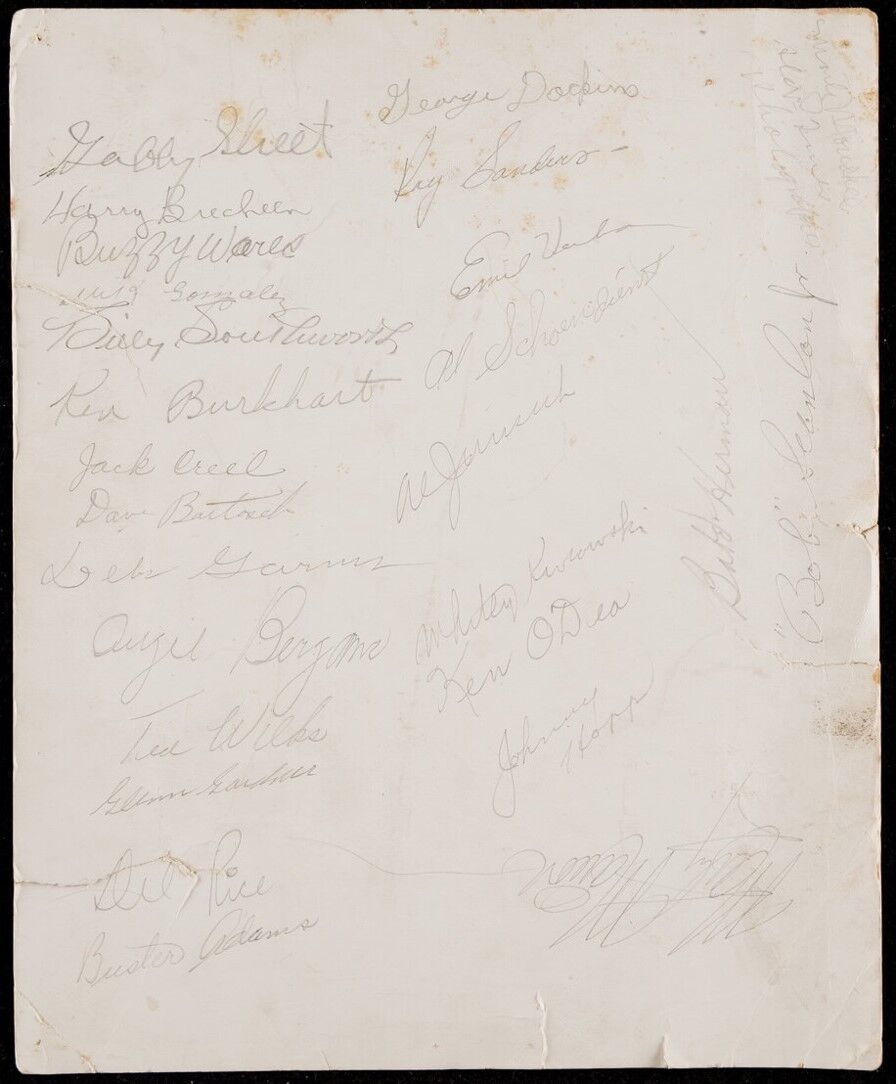 Gabby Street
Harry Brecheen
Buzzy Wares
Mike Gonzalez
Billy Southworth
Ken Burkhart
Jack Creel
Dave Bartosch
Debs Garms
Augie Bergamo
Ted Wilks
Glenn Gardner
Del Rice
Buster Adams
George Dockins
Ray Sanders
Emil Verban
Al Schoendienst
Al Jurisich
Whitey Kurowski
Ken O'Dea
Johnny
Hopp
Marty Marion
Babe Herman
"Bob" Scanlon Jr.